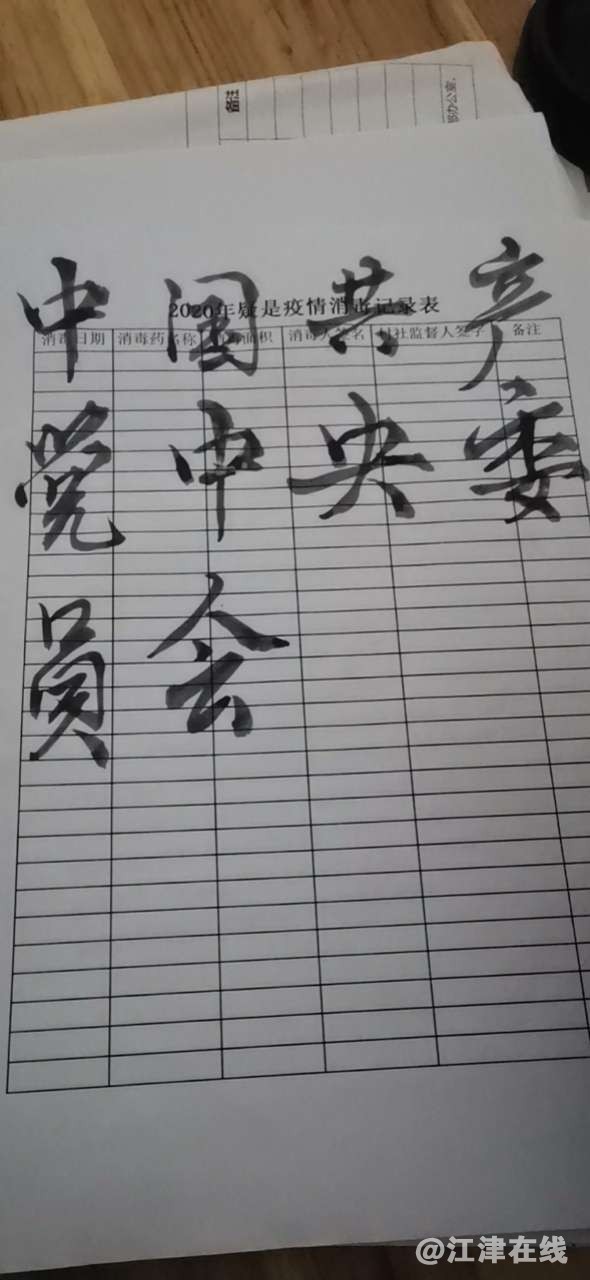 备注
部办公室,
中国共产
2020年疑是疫情消毒记录表
消毒日期 消毒药名称 消毒面积 消毒人签名 村社监督人签字 备注
党中央委
员会
@江津在线